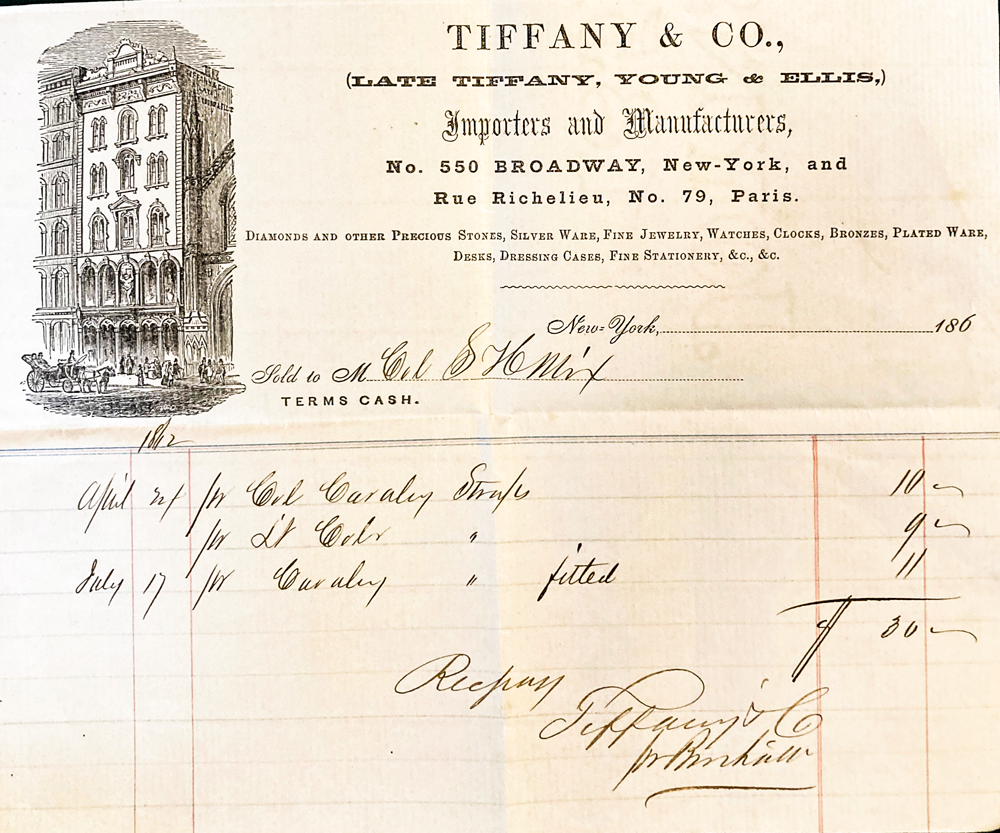 TIFFANY & CO.,
(LATE TIFFANY, YOUNG & ELLIS,)
Importers and Manufacturers,
No. 550 BROADWAY, New-York, and
Rue Richelieu, No. 79, Paris.
DIAMONDS AND OTHER PRECIOUS STONES, SILVER WARE, FINE JEWELRY, WATCHES, CLOCKS, BRONZES, PLATED WARE,
DESKS, DRESSING CASES, FINE STATIONERY, &C., &C.
New-York, 186
Sold to M Col S H Mix
TERMS CASH.
1862
April 24 pr Col Cavalry Straps 10
pr Lt Colr " 9
July 17 pr Cavalry " fitted 11
$ 30
Rec pay
Tiffany & Co
pr